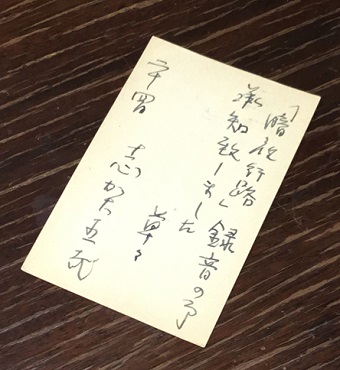 「暗夜行路」録音の事
承知致しました
草々
志賀直哉